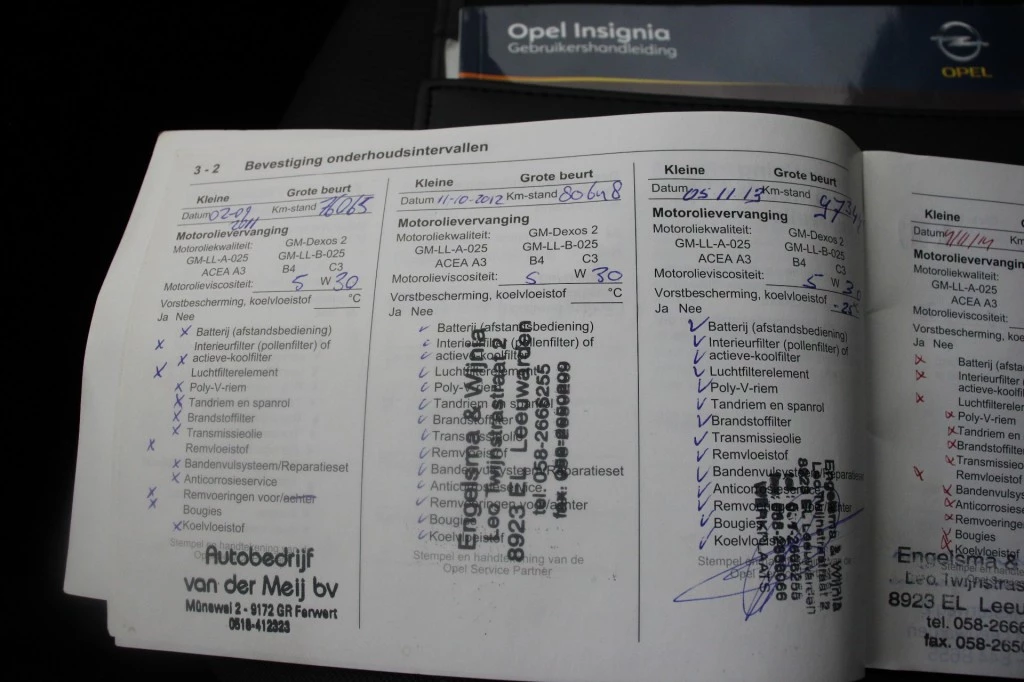 Opel Insignia
Gebruikershandleiding
OPEL
3 - 2 Bevestiging onderhoudsintervallen
Kleine Grote beurt
Datum 02-09 2011 Km-stand 76065
Motorolievervanging
Motoroliekwaliteit: GM-Dexos 2
GM-LL-A-025 GM-LL-B-025
ACEA A3 B4 C3
Motorolieviscositeit: 5 W 30
Vorstbescherming, koelvloeistof °C
Ja Nee
Batterij (afstandsbediening)
Interieurfilter (pollenfilter) of
actieve-koolfilter
Luchtfilterelement
Poly-V-riem
Tandriem en spanrol
Brandstoffilter
Transmissieolie
Remvloeistof
Bandenvulsysteem/Reparatieset
Anticorrosieservice
Remvoeringen voor/achter
Bougies
Koelvloeistof
Autobedrijf
van der Meij bv
Mûnewei 2 - 9172 GR Ferwert
0518-412323
Kleine Grote beurt
Datum 11-10-2012 Km-stand 80648
Motorolievervanging
Motoroliekwaliteit: GM-Dexos 2
GM-LL-A-025 GM-LL-B-025
ACEA A3 B4 C3
Motorolieviscositeit: 5 W 30
Vorstbescherming, koelvloeistof °C
Ja Nee
Batterij (afstandsbediening)
Interieurfilter (pollenfilter) of
actieve-koolfilter
Luchtfilterelement
Poly-V-riem
Tandriem en spanrol
Brandstoffilter
Transmissieolie
Remvloeistof
Bandenvulsysteem/Reparatieset
Anticorrosieservice
Remvoeringen voor/achter
Bougies
Koelvloeistof
Stempel en handtekening van de
Opel Service Partner
Engelsma & Wijnia
Leo Twijnstrastraat 2
8923 EL Leeuwarden
tel. 058-2666255
Kleine Grote beurt
Datum 05 11 13 Km-stand
Motorolievervanging
Motoroliekwaliteit: GM-Dexos 2
GM-LL-A-025 GM-LL-B-025
ACEA A3 B4 C3
Motorolieviscositeit: 5 W 30
Vorstbescherming, koelvloeistof -25 °C
Ja Nee
Batterij (afstandsbediening)
Interieurfilter (pollenfilter) of
actieve-koolfilter
Luchtfilterelement
Poly-V-riem
Tandriem en spanrol
Brandstoffilter
Transmissieolie
Remvloeistof
Bandenvulsysteem/Reparatieset
Anticorrosieservice
Bougies
Koelvloeistof
Engelsma & Wijnia
Leo Twijnstrastraat 2
8923 EL Leeuwarden
WERKPLAATS
Kleine
Datum
Motorolievervanging
Motoroliekwaliteit:
GM-LL-A-025
ACEA A3
Motorolieviscositeit:
Vorstbescherming, koel
Ja Nee
Batterij (afsta
Interieurfilter
actieve-koolfi
Luchtfilterele
Poly-V-riem
Tandriem en
Brandstoffil
Transmissieo
Remvloeistof
Bandenvulsys
Anticorrosies
Remvoeringe
Bougies
Koelvloeistof
Engelsma &
Leo Twijnstras
8923 EL Leeu
tel. 058-2666
fax. 058-265